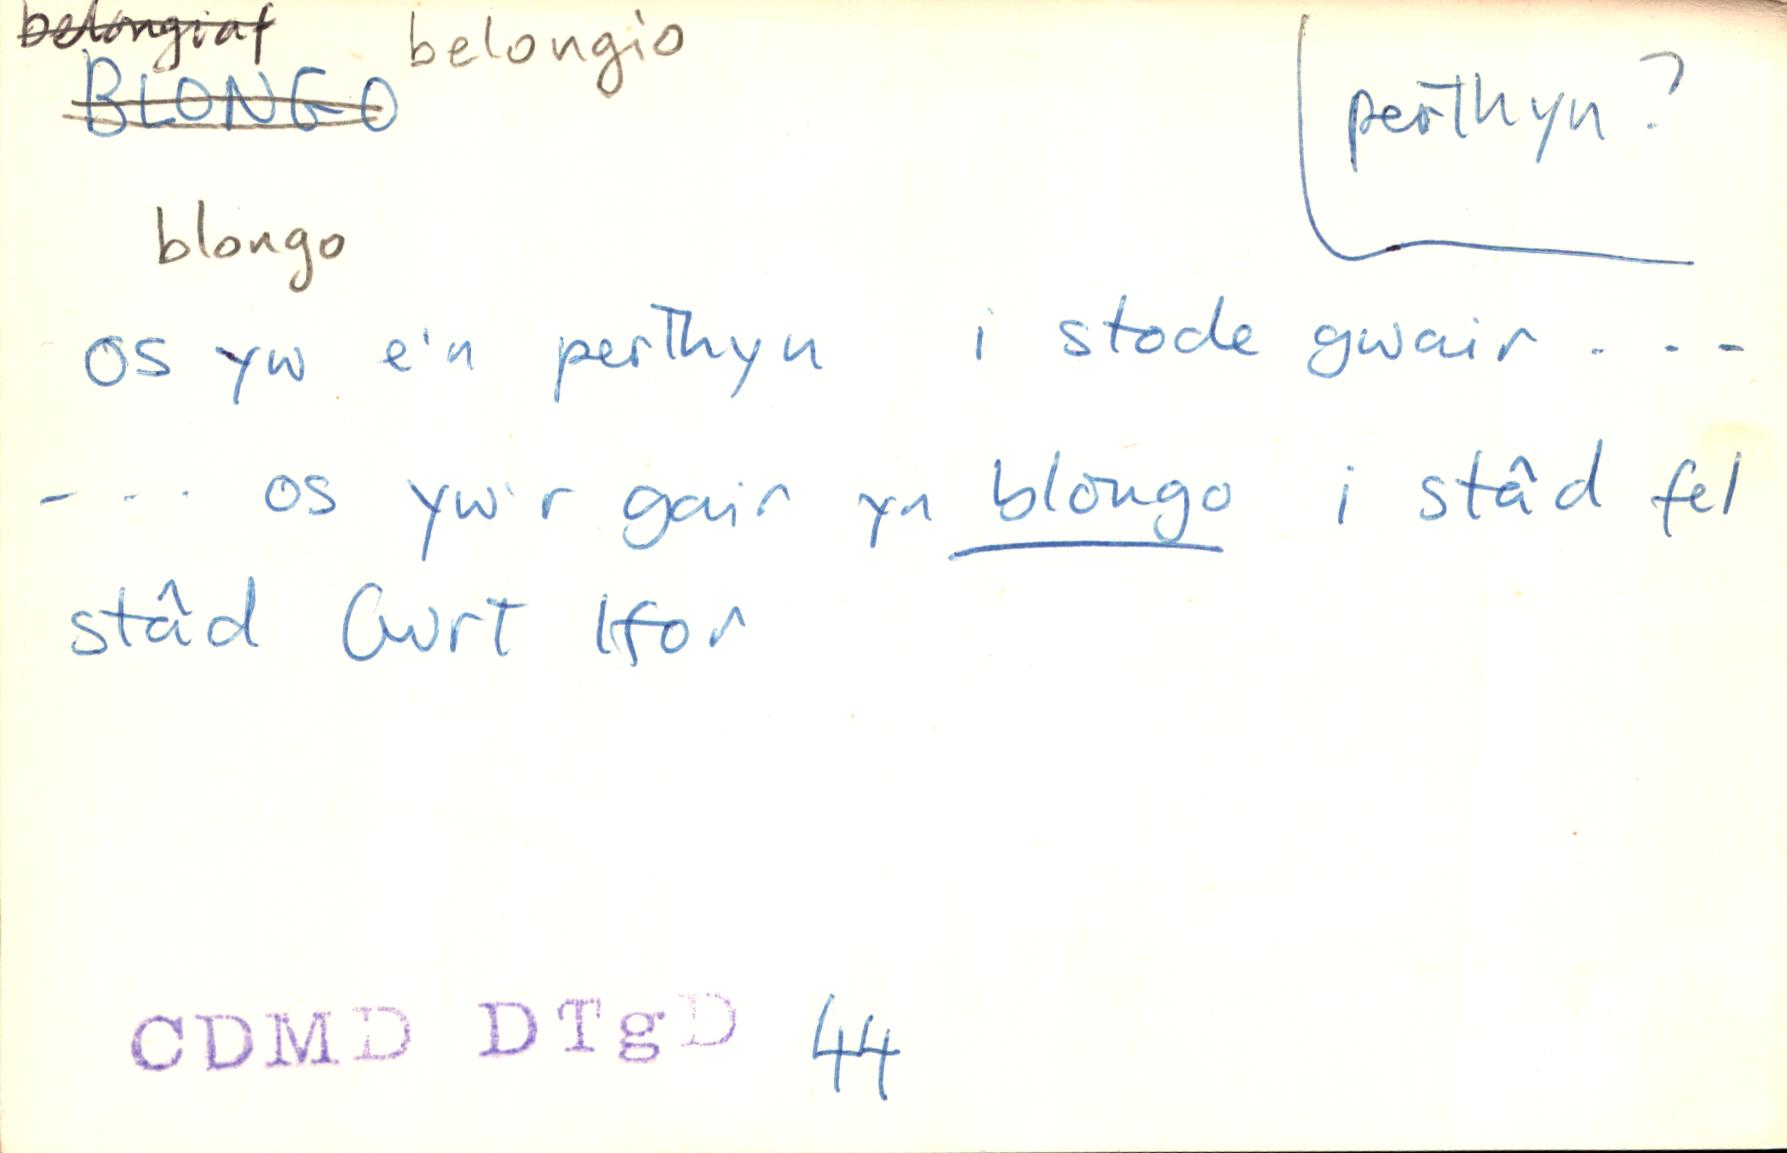 belongiaf belongio
BLONGO
perthyn?
blongo
os yw e'n perthyn i stode gwair . - - -
- - . . os yw'r gair yn blongo i stâd fel
stâd Cwrt Ifor
CDMD DTgD 44